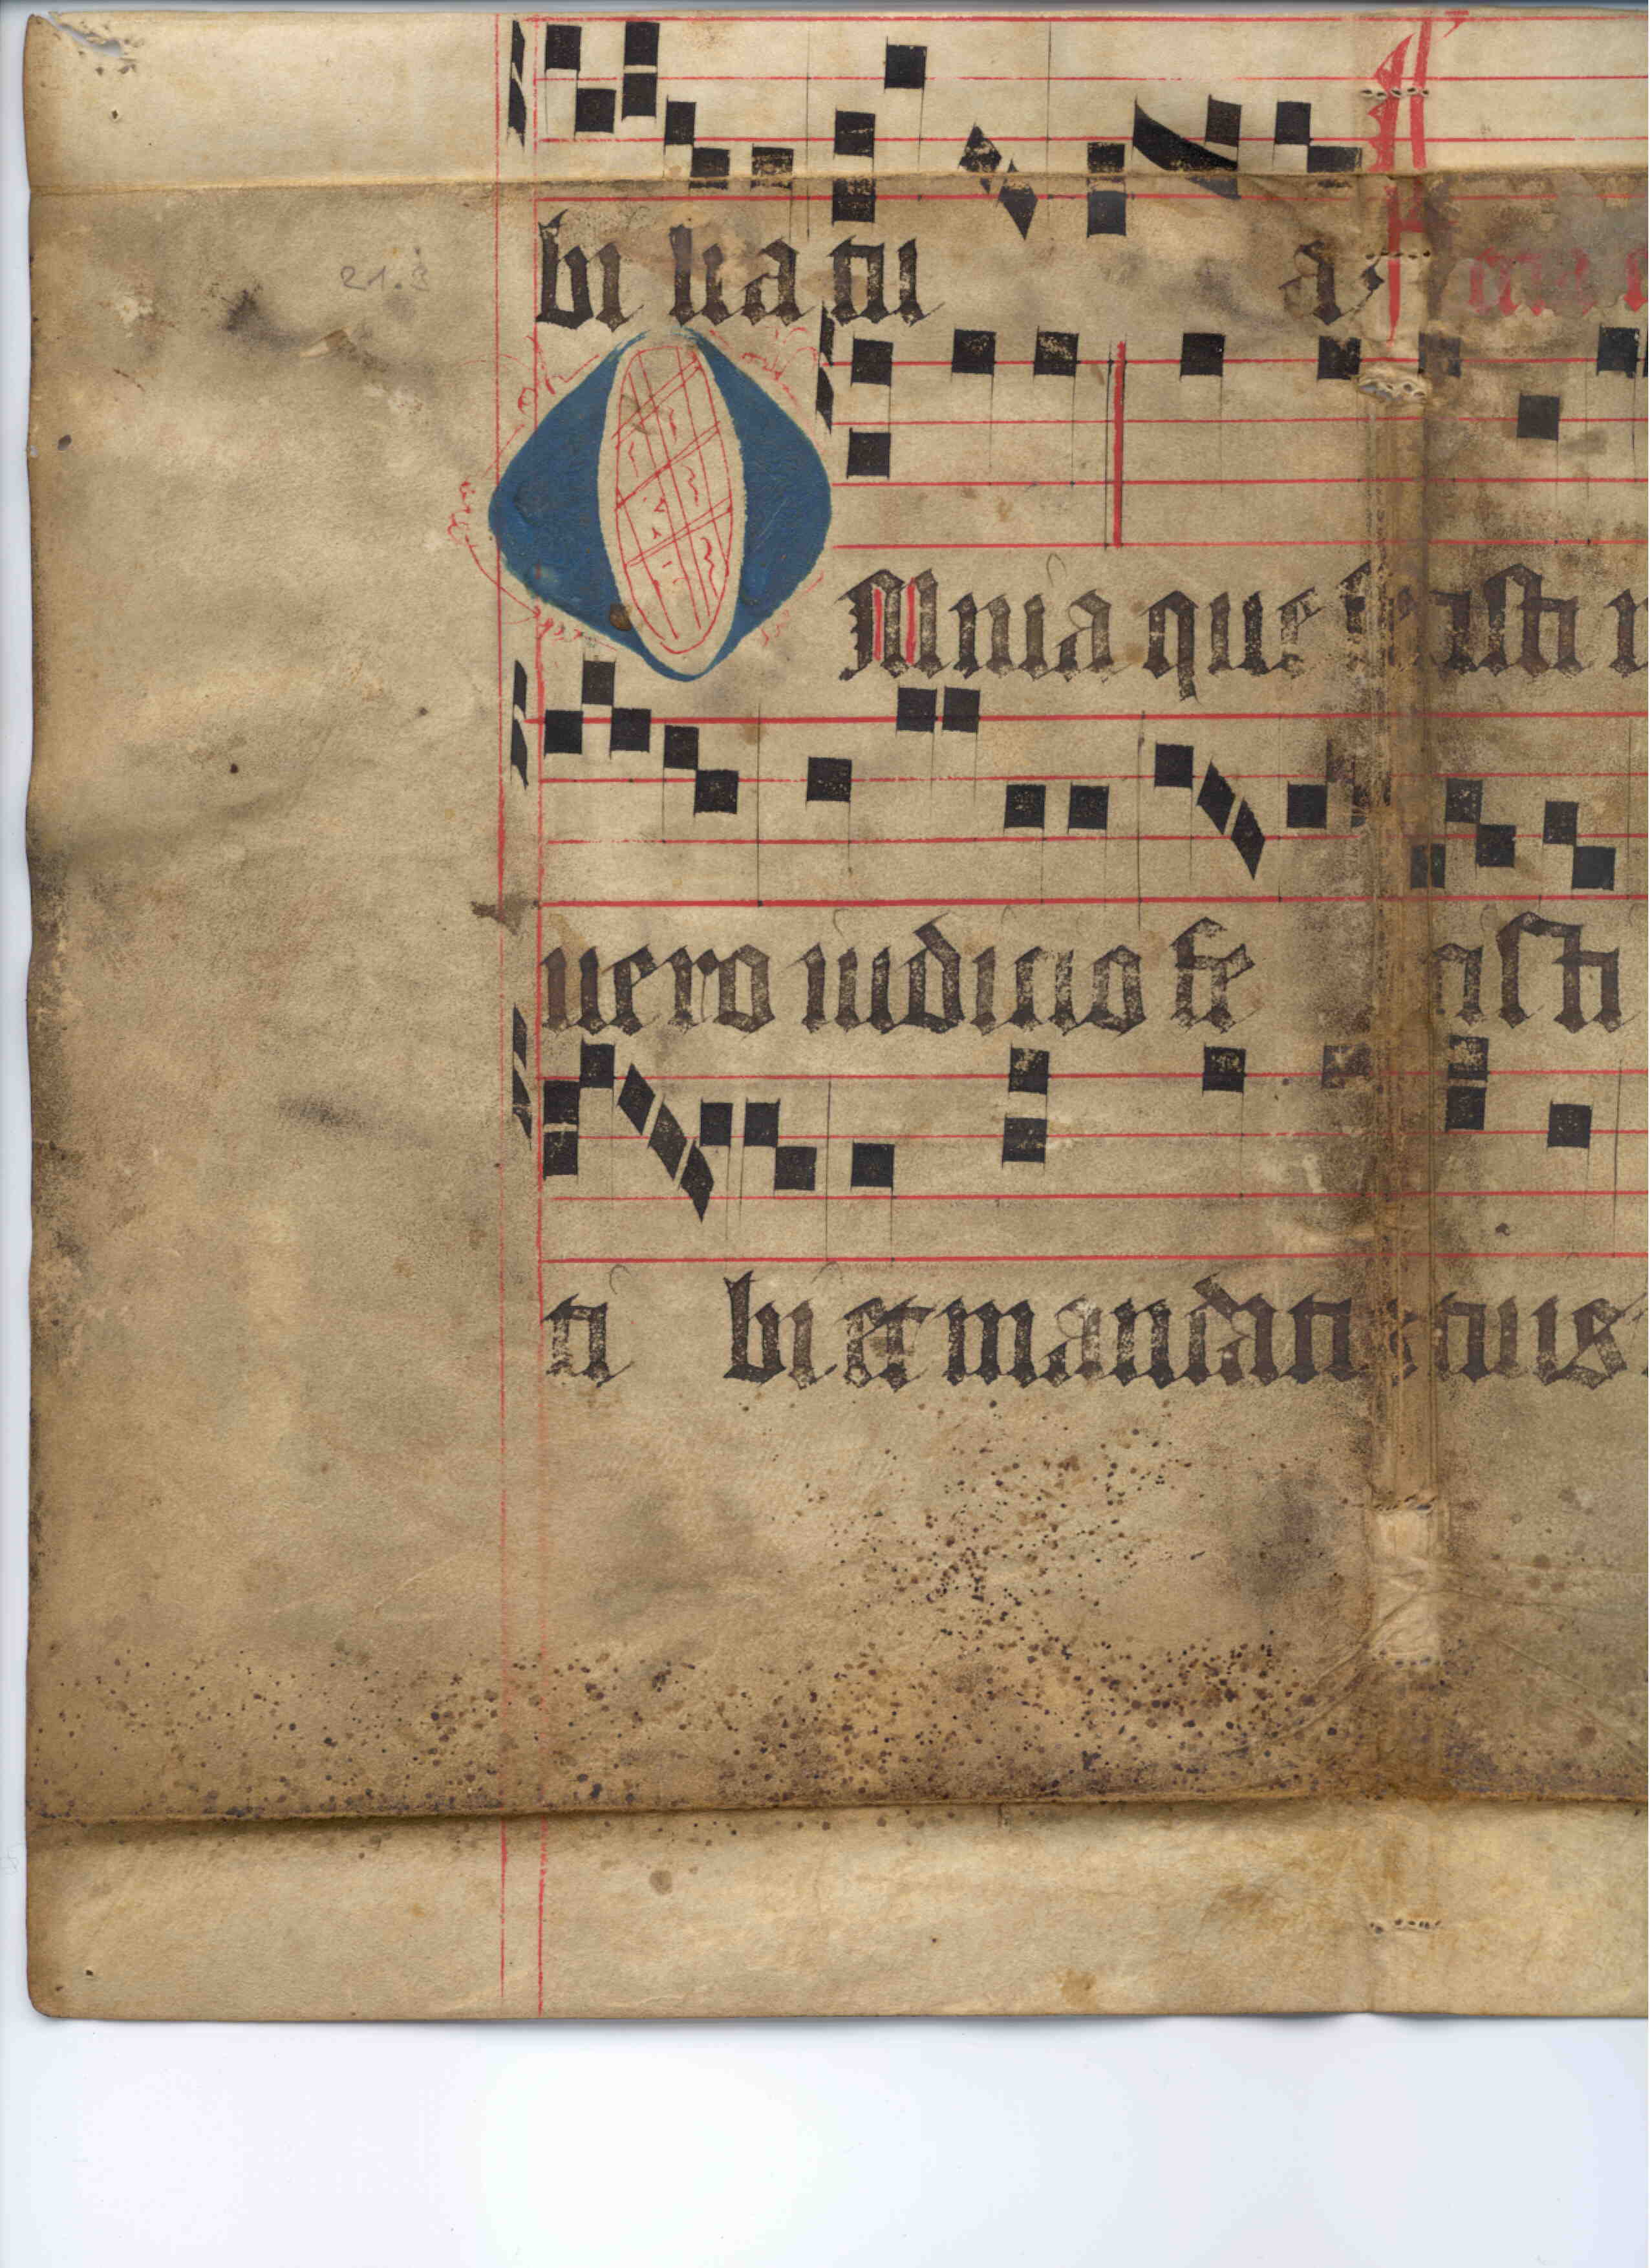 bi lia tu a
21.3
OMnia que fecisti n
uero iudicio fe cisti
ti bi et mandatis tuis